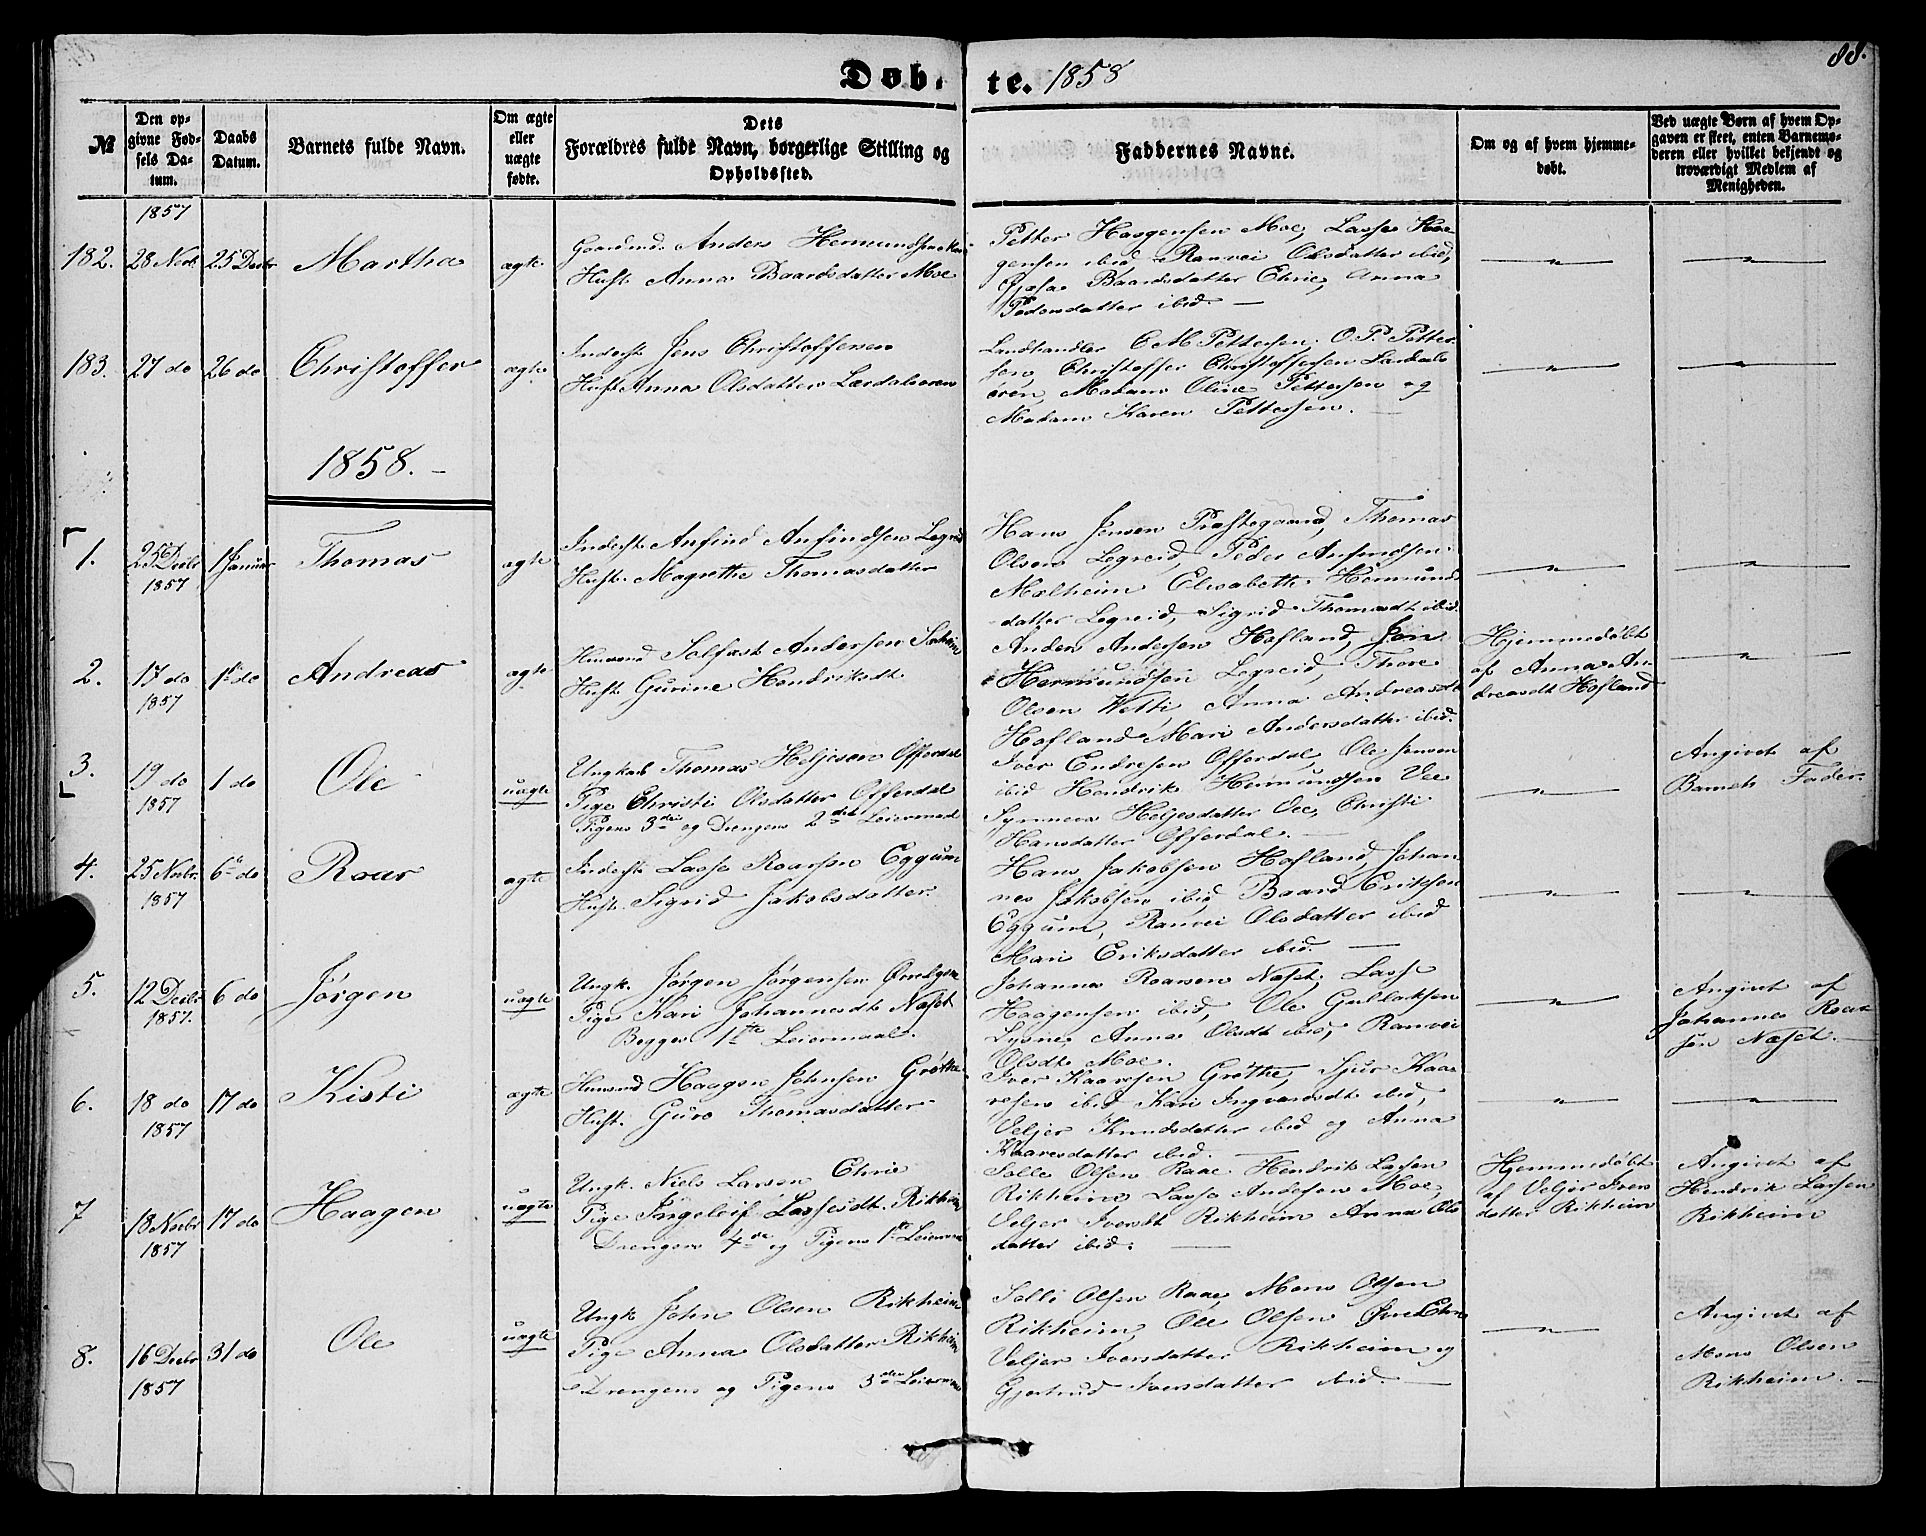 88.
Døb- te. 1858
№
Den op-
givne Fød-
sels Da-
tum.
Daabs
Datum.
Barnets fulde Navn.
Om ægte
eller
uægte
fødte.
Dets
Forældres fulde Navn, borgerlige Stilling og
Opholdssted.
Faddernes Navne.
Om og af hvem hjemme-
døbt.
Ved uægte Børn af hvem Op-
gaven er skeet, enten Barnemo-
deren eller hvilket bekjendt og
troværdigt Medlem af
Menigheden.
1857
182. 28 Novbr 25 Decbr Martha ægte
Gaardmd. Anders Hermundsen
Hust. Anna Baardsdatter Moe
Petter Haagensen Moe, Lasse Haa-
gensen ibid, Ranvei Olsdatter ibid,
Baardsdatter Ehrie, Anna
Pedersdatter ibid. —
183. 27 do 26 do Christoffer ægte
Inderst Jens Christoffersen
Hust Anna Olsdatter Lærdalsøren
Landhandler C M Pettersen, O. P. Petter-
sen, Christoffer Christoffersen Lærdals-
øren, Madam Oline Pettersen og
Madam Karen Pettersen. —
1858. —
1. 25 Decbr 1857 1 Januar Thomas ægte
Inderst Anfind Anfindsen Legreid
Hust. Magrethe Thomasdatter
Hans Jensen Præstegaard, Thomas
Olsen Legreid, Peder Anfindsen
Mælheim Elisabeth Hermunds-
datter Legreid, Sigrid Thomasdt ibid
2. 17 do 1857 1 do Andreas ægte
Huusmd Solfest Andersen
Hust Gurine Hendriksdt
Anders Andersen Hofland, Jon
Hermundsen Legreid, Thore
Olsen Vetti, Anna Andreasdt
Hofland Mari Andersdatter ibid.
Hjemmedøbt
af Anna An-
dreasdt Hofland
3. 19 do 1857 1 do Ole uægte
Ungkarl Thomas Heljesen Offerdal
Pige Christi Olsdatter Offerdal
Pigens 3die og Drengens 2det Leiermaal
Iver Endresen Offerdal, Ole Jensen
ibid Hendrik Hermundsen Vee
Synneva Heljesdatter Vee, Christi
Hansdatter Offerdal. —
Angivet af
Barnets Fader
4. 25 Novbr. 1857 6 do Roar ægte
Inderst Lasse Roarsen Eggum
Hust. Sigrid Jakobsdatter
Hans Jakobsen Hofland, Johan-
nes Jakobsen ibid, Baard Eriksen
Eggum, Ranvei Olsdatter ibid
Mari Eriksdatter ibid. —
5. 12 Decbr 1857. 6 do Jørgen uægte
Ungk. Jørgen Jørgensen
Pige Kari Johannesdt Næset
Begges 1ste Leiermaal.
Johannes Roarsen Næset, Lasse
Haagensen ibid, Ole Gullaksen
Lysne Anna Olsdt ibid, Ranvei
Olsdt. Moe.
Angivet af
Johannes Roar-
sen Næset. —
6. 18 do 1857 17 do Kisti ægte
Huusmd Haagen Johnsen Grøthe
Hust. Guro Thomasdatter
Iver Kaaresen Grøthe, Sjur Kaa-
resen ibid Kari Ingvardsdt ibid,
Veljer Knudsdatter ibid og Anna
Kaaresdatter ibid. —
7 18 Novbr 1857 17 do Haagen uægte
Ungk. Niels Larsen Ehrie
Pige Ingeleif Lassesdt. Rikheim
Drengens 4de og Pigens 1ste Leiermaal
Salle Olsen Raae Hendrik Lassen
Rikheim Lasse Andersen Moe,
Veljer Iversdt Rikheim Anna Ols-
datter ibid. —
Hjemmedøbt
af Veljer Ivers-
datter Rikheim
Angivet af
Hendrik Lassen
Rikheim
8. 16 Decbr 1857 31 do Ole uægte
Ungk John Olsen Rikheim
Pige Anna Olsdatter Rikheim
Drengens og Pigens 3die Leiermaal
Salle Olsen Raae, Mons Olsen
Rikheim, Ole Olsen Øvre Ehrie
Veljer Iversdatter Rikheim og
Gjertrud Iversdatter ibid. —
Angivet af
Mons Olsen
Rikheim. —